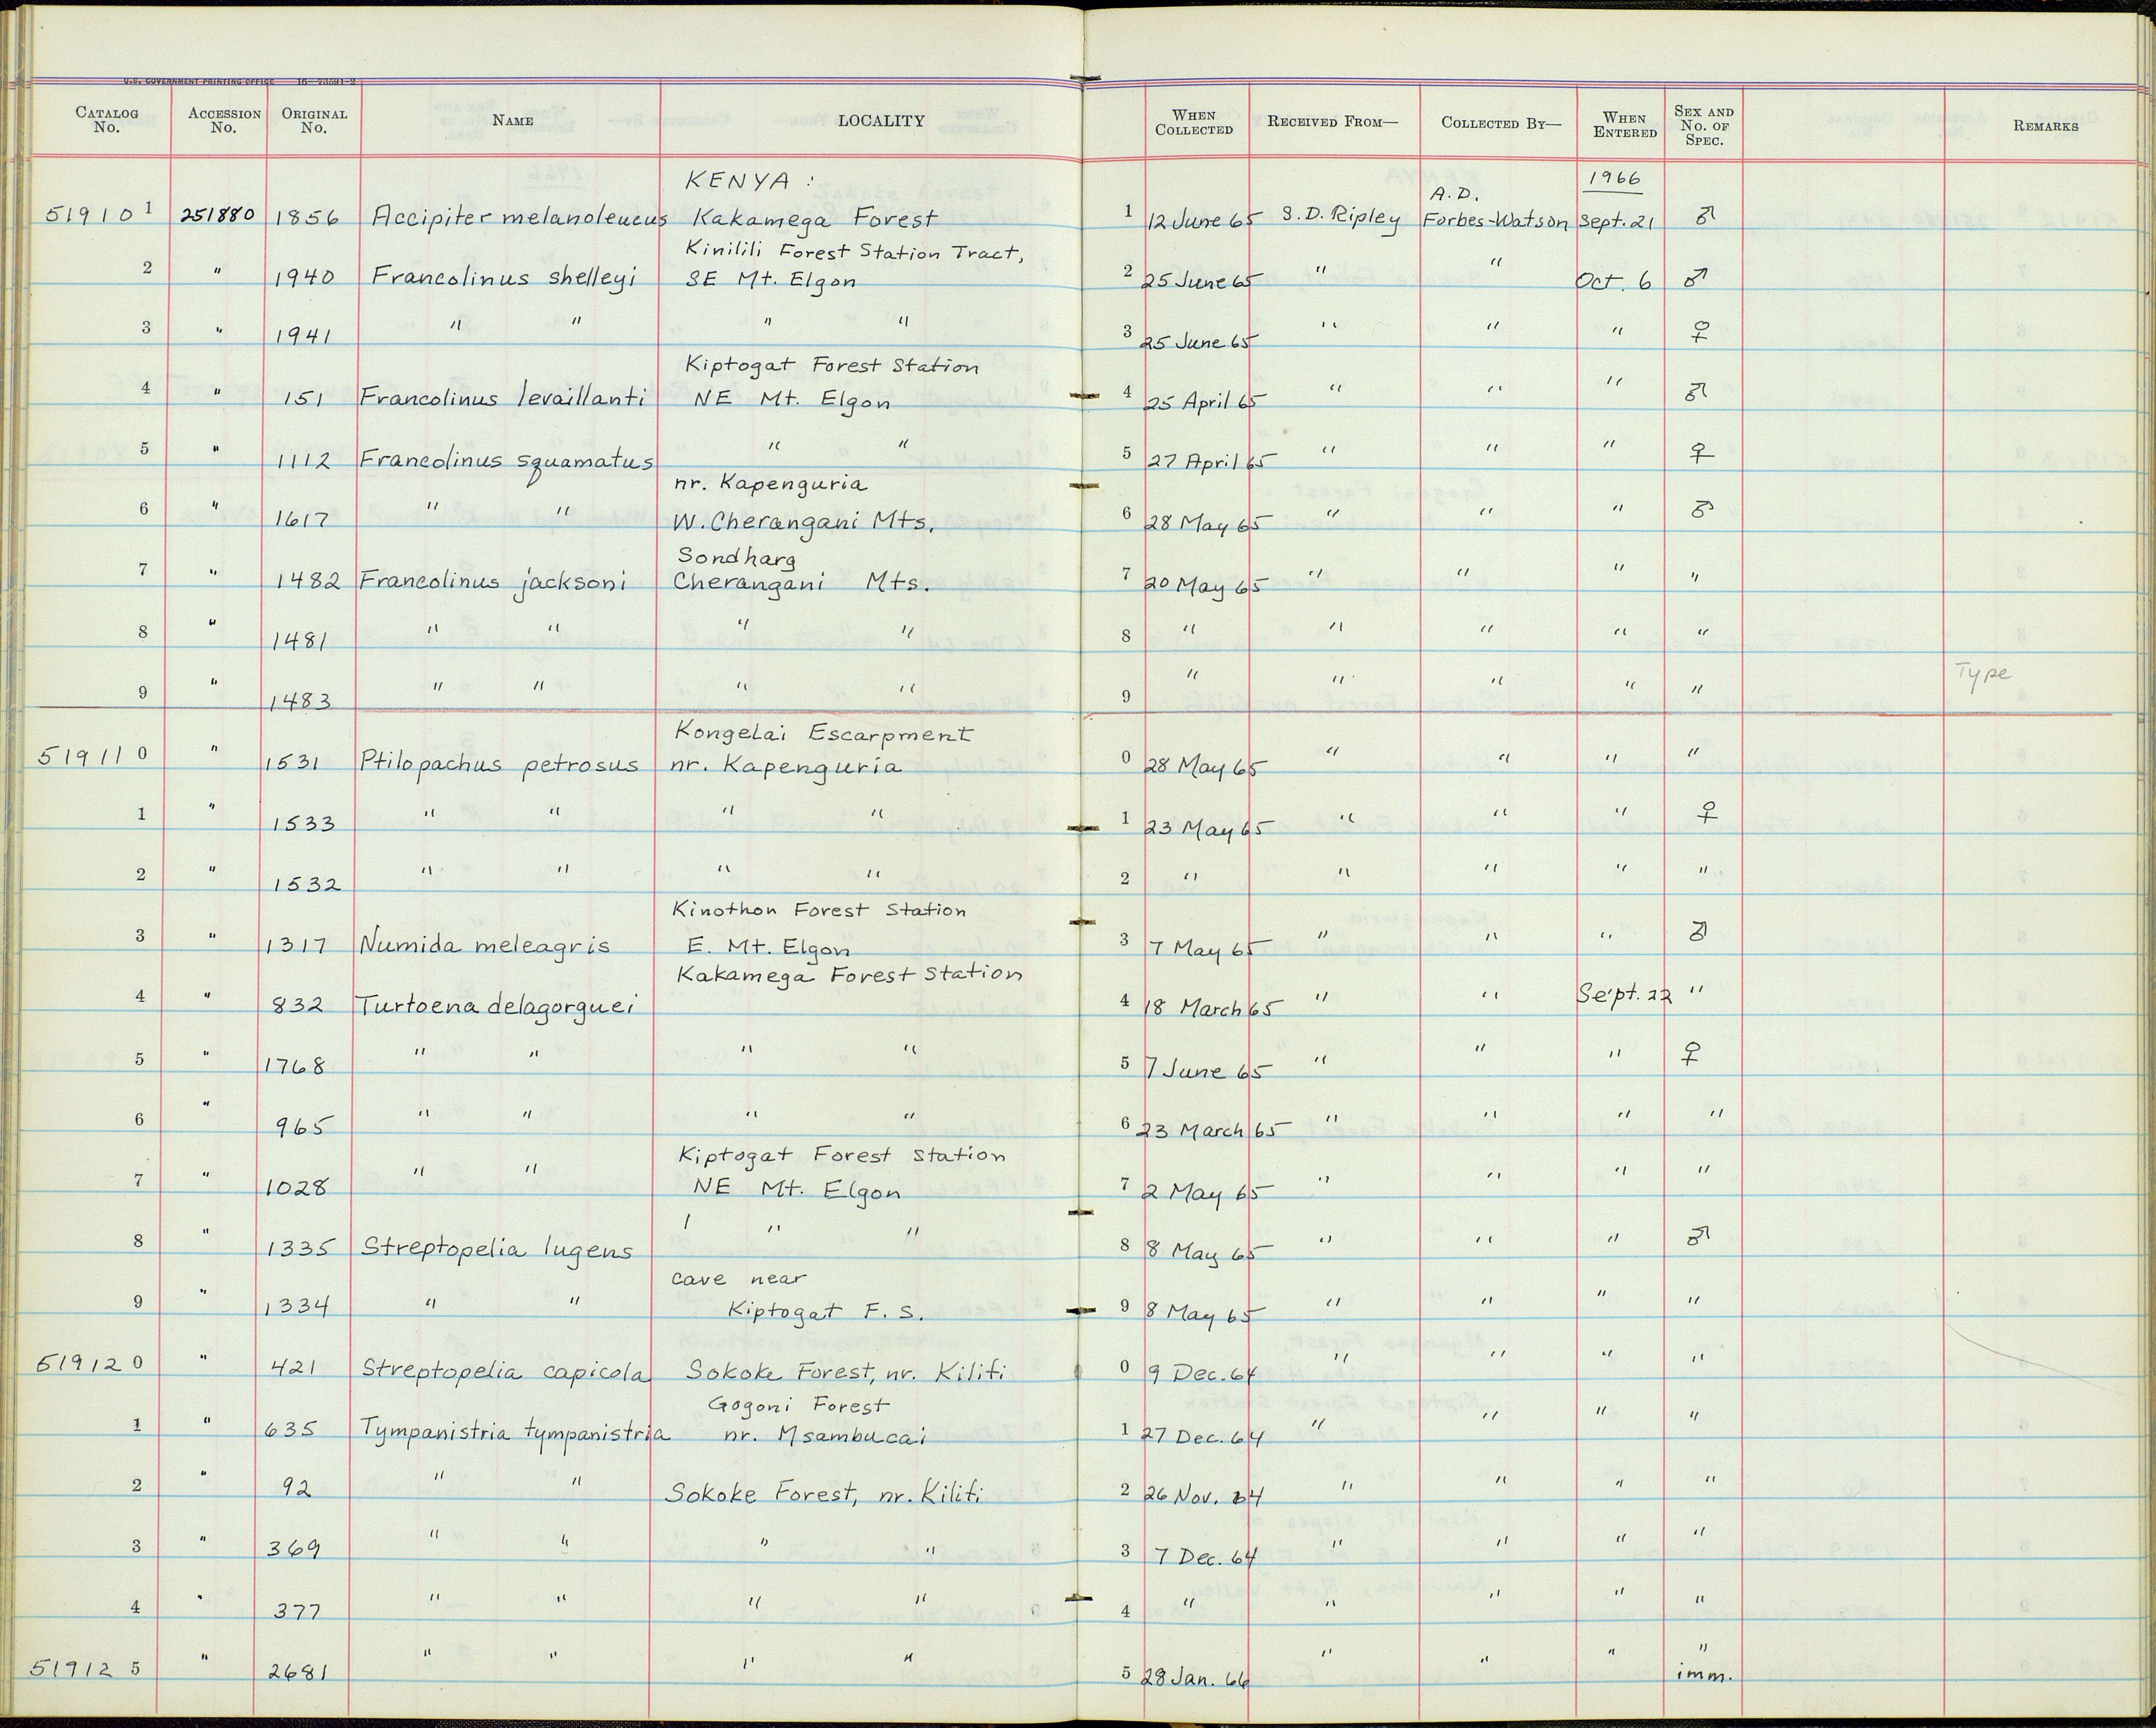 U.S. GOVERNMENT PRINTING OFFICE 16—73591-2
CATALOG No. ACCESSION No. ORIGINAL No. NAME LOCALITY WHEN COLLECTED RECEIVED FROM— COLLECTED BY— WHEN ENTERED SEX AND No. OF SPEC. REMARKS
KENYA : A.D. 1966
51910 1 251880 1856 Accipiter melanoleucus Kakamega Forest 1 12 June 65 S.D. Ripley Forbes-Watson Sept. 21 ♂
Kinilili Forest Station Tract,
2 " 1940 Francolinus shelleyi SE Mt. Elgon 2 25 June 65 " " Oct. 6 ♂
3 " 1941 " " " " 3 25 June 65 " " " ♀
Kiptogat Forest Station
4 " 151 Francolinus levaillanti NE Mt. Elgon 4 25 April 65 " " " ♂
5 " 1112 Francolinus squamatus " " 5 27 April 65 " " " ♀
nr. Kapenguria
6 " 1617 " " W. Cherangani Mts. 6 28 May 65 " " " ♂
Sondharg
7 " 1482 Francolinus jacksoni Cherangani Mts. 7 20 May 65 " " " "
8 " 1481 " " " " 8 " " " " "
9 " 1483 " " " " 9 " " " " " Type
Kongelai Escarpment
51911 0 " 1531 Ptilopachus petrosus nr. Kapenguria 0 28 May 65 " " " "
1 " 1533 " " " " 1 23 May 65 " " " ♀
2 " 1532 " " " " 2 " " " " "
Kinothon Forest Station
3 " 1317 Numida meleagris E. Mt. Elgon 3 7 May 65 " " " ♂
Kakamega Forest Station
4 " 832 Turtoena delagorguei 4 18 March 65 " " Sept. 22 "
5 " 1768 " " " " 5 7 June 65 " " " ♀
6 " 965 " " " " 6 23 March 65 " " " "
Kiptogat Forest Station
7 " 1028 " " NE Mt. Elgon 7 2 May 65 " " " "
8 " 1335 Streptopelia lugens " " 8 8 May 65 " " " ♂
cave near
9 " 1334 " " Kiptogat F. S. 9 8 May 65 " " " "
51912 0 " 421 Streptopelia capicola Sokoke Forest, nr. Kilifi 0 9 Dec. 64 " " " "
Gogoni Forest
1 " 635 Tympanistria tympanistria nr. Msambucai 1 27 Dec. 64 " " " "
2 " 92 " " Sokoke Forest, nr. Kilifi 2 26 Nov. 64 " " " "
3 " 369 " " " " 3 7 Dec. 64 " " " "
4 " 377 " " " " 4 " " " " "
51912 5 " 2681 " " " " 5 28 Jan. 66 " " " " imm.